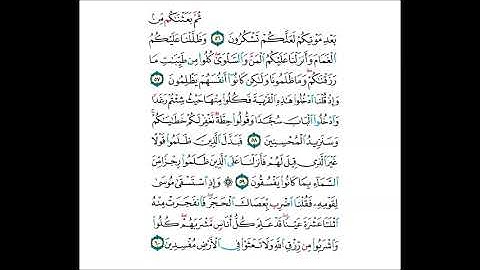 ثُمَّ بَعَثْنَٰكُم مِّنۢ
بَعْدِ مَوْتِكُمْ لَعَلَّكُمْ تَشْكُرُونَ ٥٦ وَظَلَّلْنَا عَلَيْكُمُ
ٱلْغَمَامَ وَأَنزَلْنَا عَلَيْكُمُ ٱلْمَنَّ وَٱلسَّلْوَىٰ كُلُوا۟ مِن طَيِّبَٰتِ مَا
رَزَقْنَٰكُمْ وَمَا ظَلَمُونَا وَلَٰكِن كَانُوٓا۟ أَنفُسَهُمْ يَظْلِمُونَ ٥٧
وَإِذْ قُلْنَا ٱدْخُلُوا۟ هَٰذِهِ ٱلْقَرْيَةَ فَكُلُوا۟ مِنْهَا حَيْثُ شِئْتُمْ رَغَدًا
وَٱدْخُلُوا۟ ٱلْبَابَ سُجَّدًا وَقُولُوا۟ حِطَّةٌ نَّغْفِرْ لَكُمْ خَطَٰيَٰكُمْ
وَسَنَزِيدُ ٱلْمُحْسِنِينَ ٥٨ فَبَدَّلَ ٱلَّذِينَ ظَلَمُوا۟ قَوْلًا
غَيْرَ ٱلَّذِى قِيلَ لَهُمْ فَأَنزَلْنَا عَلَى ٱلَّذِينَ ظَلَمُوا۟ رِجْزًا مِّنَ
ٱلسَّمَآءِ بِمَا كَانُوا۟ يَفْسُقُونَ ٥٩ ۞ وَإِذِ ٱسْتَسْقَىٰ مُوسَىٰ
لِقَوْمِهِۦ فَقُلْنَا ٱضْرِب بِّعَصَاكَ ٱلْحَجَرَ فَٱنفَجَرَتْ مِنْهُ
ٱثْنَتَا عَشْرَةَ عَيْنًا قَدْ عَلِمَ كُلُّ أُنَاسٍ مَّشْرَبَهُمْ كُلُوا۟
وَٱشْرَبُوا۟ مِن رِّزْقِ ٱللَّهِ وَلَا تَعْثَوْا۟ فِى ٱلْأَرْضِ مُفْسِدِينَ ٦٠